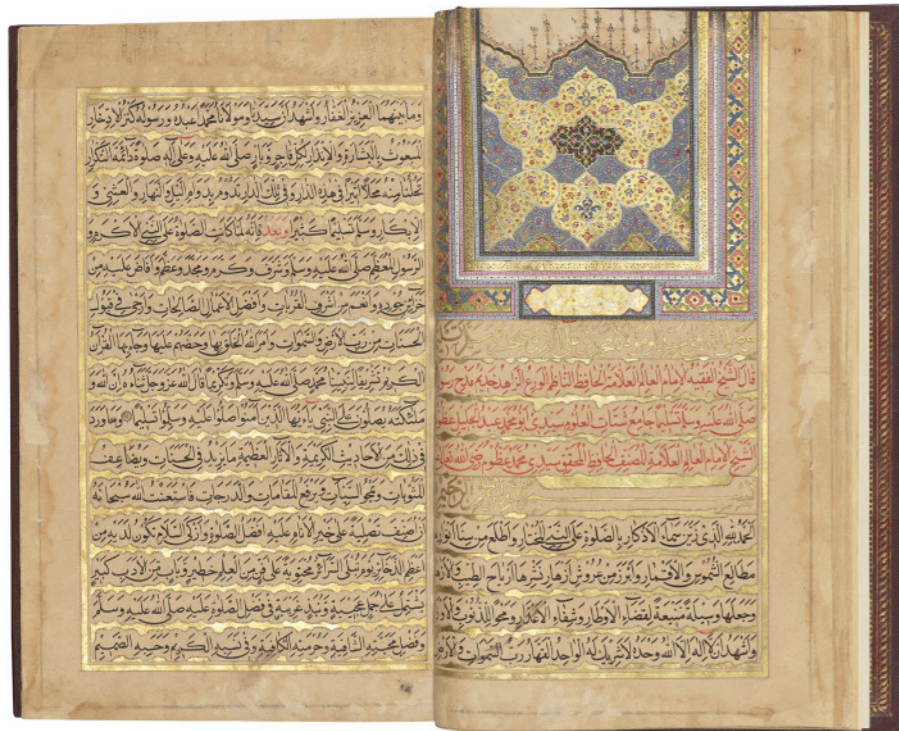 قال الشيخ الفقيه الامام العالم العلامة الحافظ الناظم الورع الزاهد خديم مدح رسول
صلى الله عليه وسلم تسليما جامع شتات العلوم سيدي ابو محمد عبد الجليل عظوم
الشيخ الامام العالم العلامة المصنف الحافظ المحقق سيدي محمد عظوم رضي الله تعالى
بسم الله الرحمن الرحيم
الحمد لله الذي زين سماء الاذكار بالصلوة على النبي المختار واطلع من سنا انواره
مطالع الشموس والاقمار وابرز من عروش ازهار نشرها ارباح الطيب والازهار
وجعلها وسيلة منيعة لقضاء الاوطار وشفاء الاعذار ومحو الذنوب والاوزار
واشهد ان لا اله الا الله وحده لا شريك له الواحد القهار رب السموات والارض
وما بينهما العزيز الغفار واشهد ان سيدنا ومولانا محمدا عبده ورسوله كنز الادخار
المبعوث بالبشارة والانذار لكل فاجر وبار صلى الله عليه وعلى آله صلوة دائمة التكرار
تحلنا منه محلا اثيرا في هذه الدار وفي تلك الدار تدوم بدوام الليل والنهار والعشي و
الابكار وسلم تسليما كثيرا وبعد فانه لما كانت الصلوة على النبي الاكرم و
الرسول المعظم صلى الله عليه وسلم وشرف وكرم ومجد وعظم وافاض عليه من
خزائن جوده وانعم من اشرف القربات وافضل الاعمال الصالحات وارجى في قبول
الحسنات من رب الارض والسموات وامر الله الخلق بها وحضهم عليها وجاء بها القرآن
الكريم تشريفا لنبينا محمد صلى الله عليه وسلم وتكريما قال الله عز وجل ثناؤه ان الله و
ملئكته يصلون على النبي ياءيها الذين آمنوا صلوا عليه وسلموا تسليما وما ورد
في ذلك من الاحاديث الكريمة والآثار العظيمة ما يزيد في الحسنات ويضاعف
المثوبات ويمحو السيآت ويرفع المقامات والدرجات فاستعنت الله سبحانه
ان اصنف تصلية على خير الانام عليه افضل الصلوة وازكى السلام تكون لديه من
اعظم الذخائر يوم تبلى السرائر محتوية على فن من العلم خطير وباب من الادب كبير
يشتمل على جمل عجيبة ونبذ غريبة في فضل الصلوة عليه صلى الله عليه وسلم
وفضل محبته الشافية وحرمته الكافية وفي نسبه الكريم وحبه الصميم